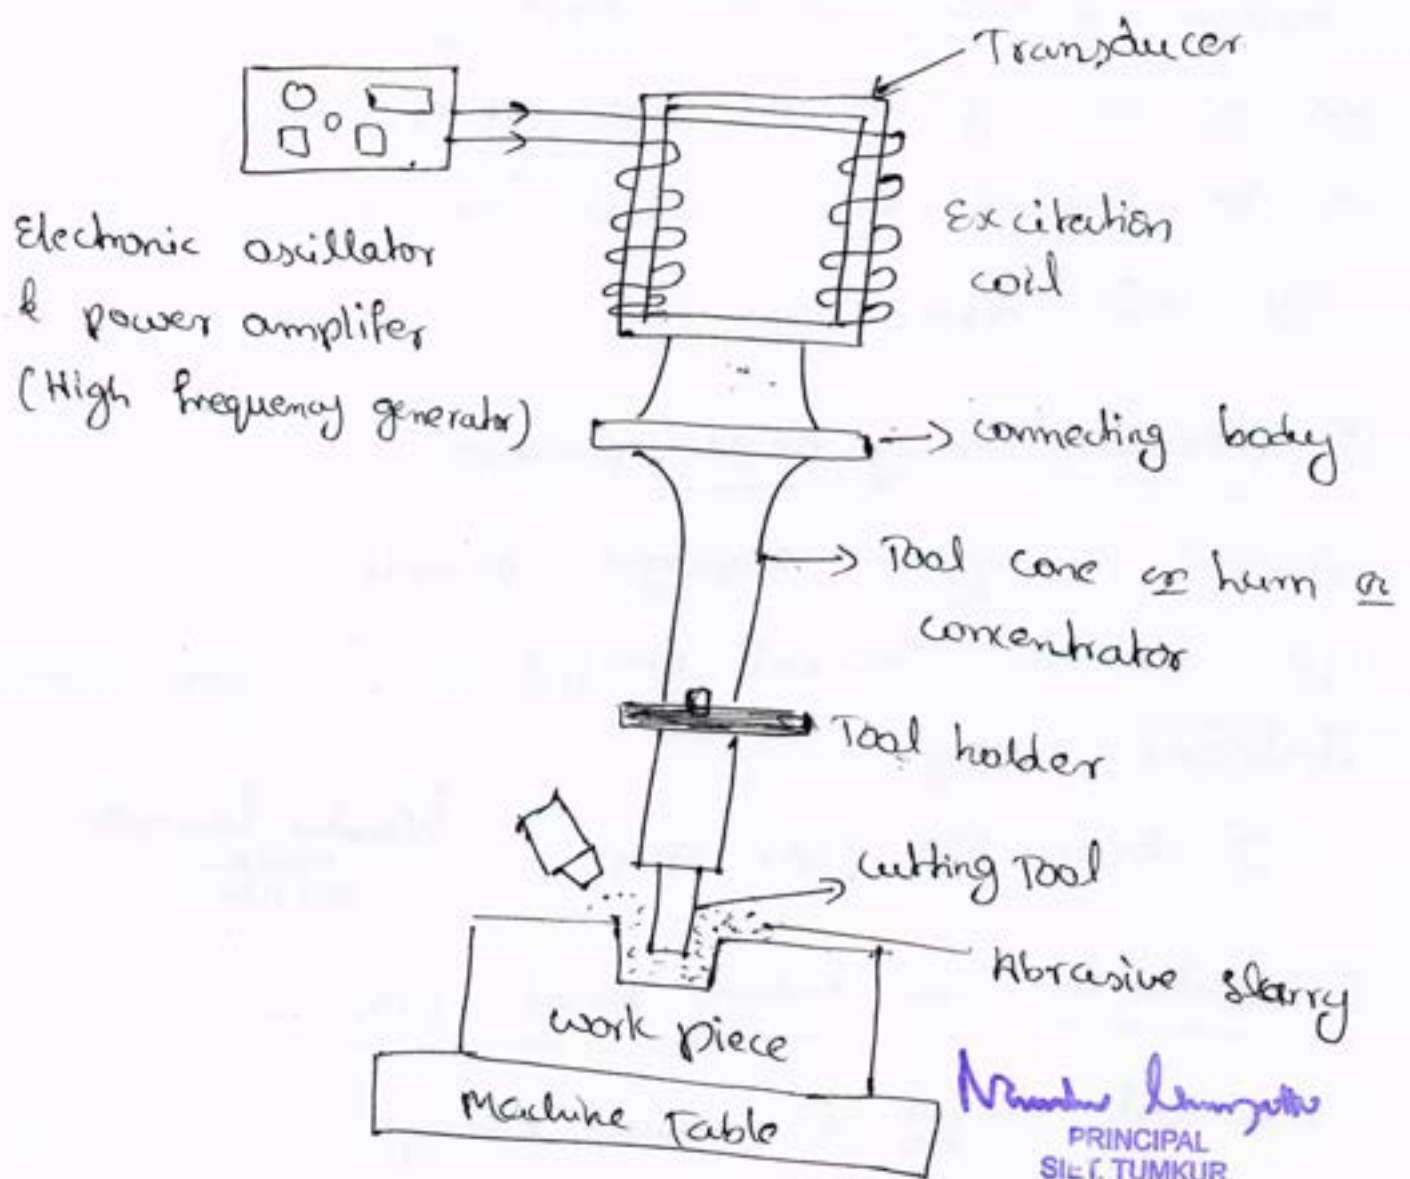 Transducer
Electronic oscillator
& power amplifer
(High frequency generator)
Excitation
coil
connecting body
Tool cone or horn or
concentrator
Tool holder
cutting Tool
Abrasive slarry
work piece
Machine Table
PRINCIPAL
SIET. TUMKUR.